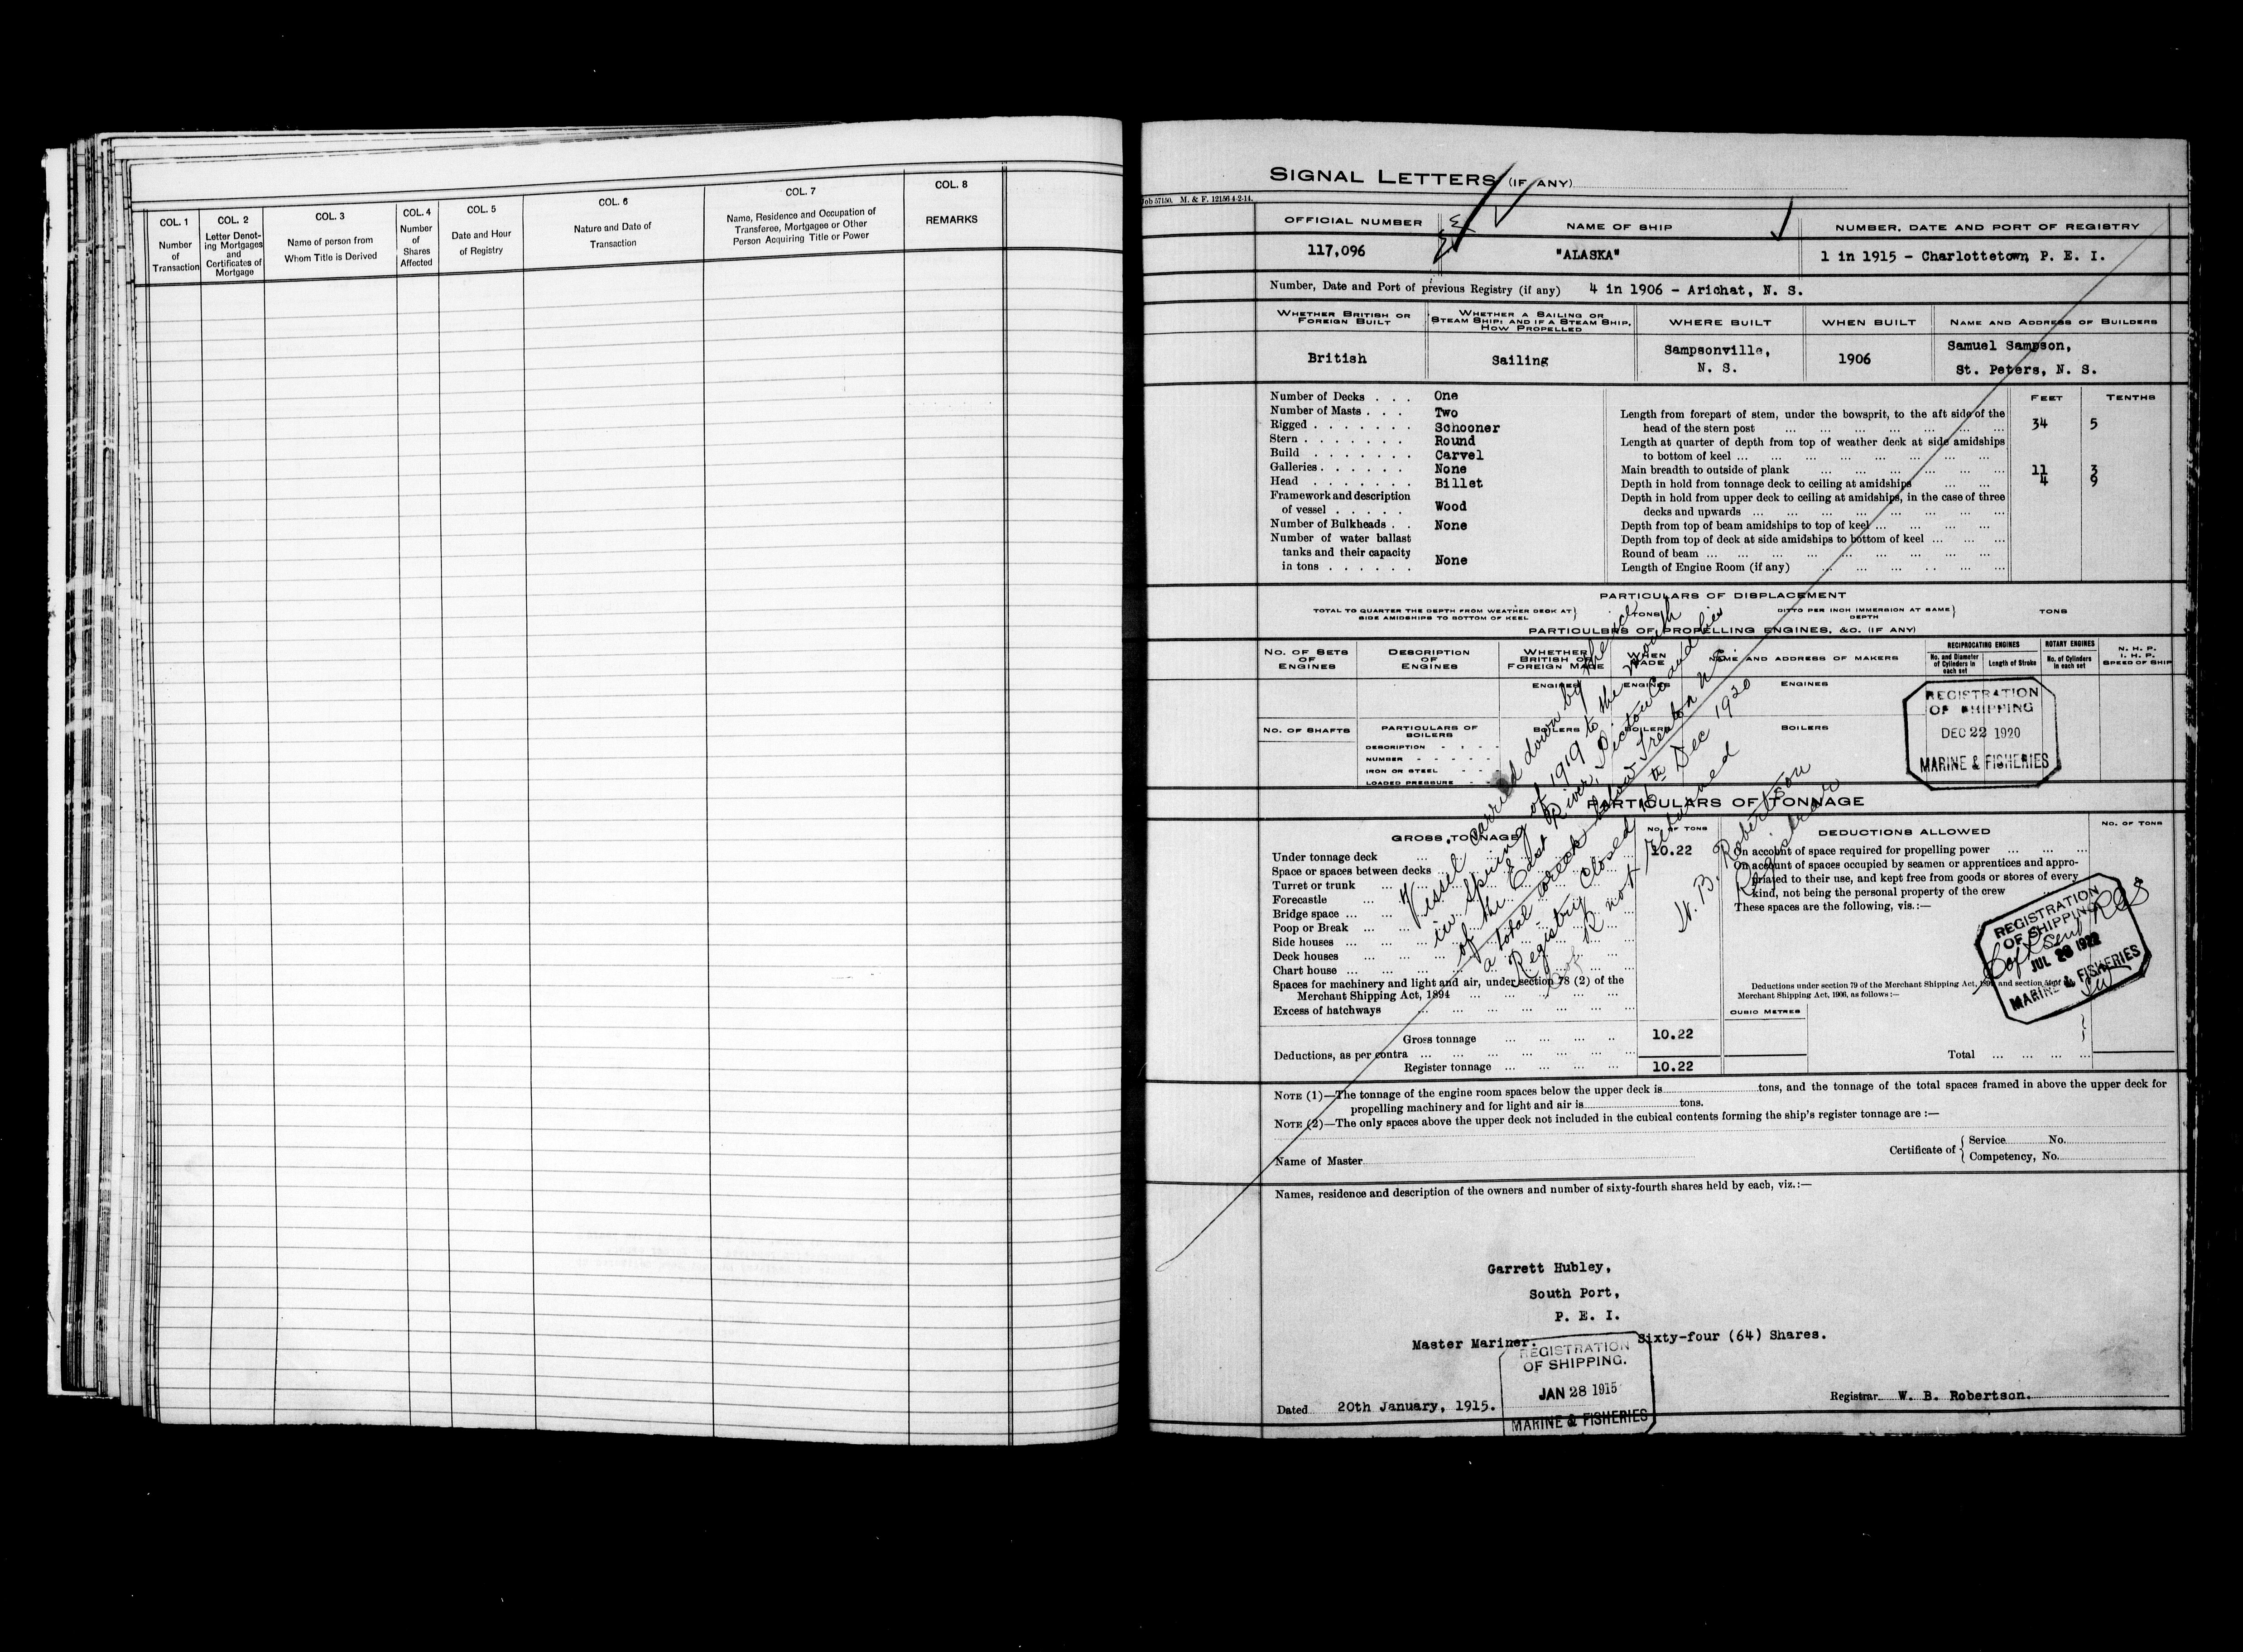 COL. 1
Number
of
Transaction
COL. 2
Letter Denot-
ing Mortgages
and
Certificates of
Mortgage
COL. 3
Name of person from
Whom Title is Derived
COL. 4
Number
of
Shares
Affected
COL. 5
Date and Hour
of Registry
COL. 6
Nature and Date of
Transaction
COL. 7
Name, Residence and Occupation of
Transferee, Mortgagee or Other
Person Acquiring Title or Power
COL. 8
REMARKS
SIGNAL LETTERS (IF ANY)
Job 57150. M. & F. 12156 4-2-14.
OFFICIAL NUMBER
NAME OF SHIP
NUMBER, DATE AND PORT OF REGISTRY
117,096
"ALASKA"
1 in 1915 - Charlottetown, P. E. I.
Number, Date and Port of previous Registry (if any) 4 in 1906 - Arichat, N. S.
WHETHER BRITISH OR
FOREIGN BUILT
WHETHER A SAILING OR
STEAM SHIP; AND IF A STEAM SHIP,
HOW PROPELLED
WHERE BUILT
WHEN BUILT
NAME AND ADDRESS OF BUILDERS
British
Sailing
Sampsonville,
N. S.
1906
Samuel Sampson,
St. Peters, N. S.
Number of Decks . . . One
Number of Masts . . . Two
Rigged . . . . . . . Schooner
Stern . . . . . . . Round
Build . . . . . . . Carvel
Galleries . . . . . . None
Head . . . . . . . Billet
Framework and description
of vessel . . . . . Wood
Number of Bulkheads . . None
Number of water ballast
tanks and their capacity
in tons . . . . . . None
FEET TENTHS
Length from forepart of stem, under the bowsprit, to the aft side of the
head of the stern post 34 5
Length at quarter of depth from top of weather deck at side amidships
to bottom of keel
Main breadth to outside of plank 11 3
Depth in hold from tonnage deck to ceiling at amidships 4 9
Depth in hold from upper deck to ceiling at amidships, in the case of three
decks and upwards
Depth from top of beam amidships to top of keel
Depth from top of deck at side amidships to bottom of keel
Round of beam
Length of Engine Room (if any)
PARTICULARS OF DISPLACEMENT
TOTAL TO QUARTER THE DEPTH FROM WEATHER DECK AT
SIDE AMIDSHIPS TO BOTTOM OF KEEL
TONS
DITTO PER INCH IMMERSION AT SAME
DEPTH
TONS
PARTICULARS OF PROPELLING ENGINES, &C. (IF ANY)
NO. OF SETS
OF
ENGINES
DESCRIPTION
OF
ENGINES
WHETHER
BRITISH OR
FOREIGN MADE
WHEN
MADE
NAME AND ADDRESS OF MAKERS
RECIPROCATING ENGINES
No. and Diameter
of Cylinders in
each set
Length of Stroke
ROTARY ENGINES
No. of Cylinders
in each set
N. H. P.
I. H. P.
SPEED OF SHIP
ENGINES
ENGINES
ENGINES
NO. OF SHAFTS
PARTICULARS OF
BOILERS
DESCRIPTION
NUMBER
IRON OR STEEL
LOADED PRESSURE
BOILERS
BOILERS
BOILERS
REGISTRATION
OF SHIPPING
DEC 22 1920
MARINE & FISHERIES
Vessel carried down by the ice
in Spring of 1919 to the mouth
of the East River, Pictou Co and lies
a total wreck below Trenton N S
Registry closed 16th Dec 1920
C of R not returned
W. B. Robertson
Registrar
PARTICULARS OF TONNAGE
GROSS TONNAGE
NO. OF TONS
Under tonnage deck 10.22
Space or spaces between decks
Turret or trunk
Forecastle
Bridge space
Poop or Break
Side houses
Deck houses
Chart house
Spaces for machinery and light and air, under section 78 (2) of the
Merchant Shipping Act, 1894
Excess of hatchways
Gross tonnage 10.22
Deductions, as per contra
Register tonnage 10.22
DEDUCTIONS ALLOWED
NO. OF TONS
On account of space required for propelling power
On account of spaces occupied by seamen or apprentices and appro-
priated to their use, and kept free from goods or stores of every
kind, not being the personal property of the crew
These spaces are the following, vis.:—
REGISTRATION
OF SHIPPING
JUL 28 1922
MARINE & FISHERIES
Deductions under section 79 of the Merchant Shipping Act, and section
Merchant Shipping Act, 1906, as follows:—
CUBIC METRES
Total
NOTE (1)—The tonnage of the engine room spaces below the upper deck is tons, and the tonnage of the total spaces framed in above the upper deck for
propelling machinery and for light and air is tons.
NOTE (2)—The only spaces above the upper deck not included in the cubical contents forming the ship's register tonnage are :—
Name of Master
Certificate of { Service No.
Competency, No.
Names, residence and description of the owners and number of sixty-fourth shares held by each, viz.:—
Garrett Hubley,
South Port,
P. E. I.
Master Mariner. Sixty-four (64) Shares.
REGISTRATION
OF SHIPPING.
JAN 28 1915
MARINE & FISHERIES
Dated 20th January, 1915.
Registrar W. B. Robertson.